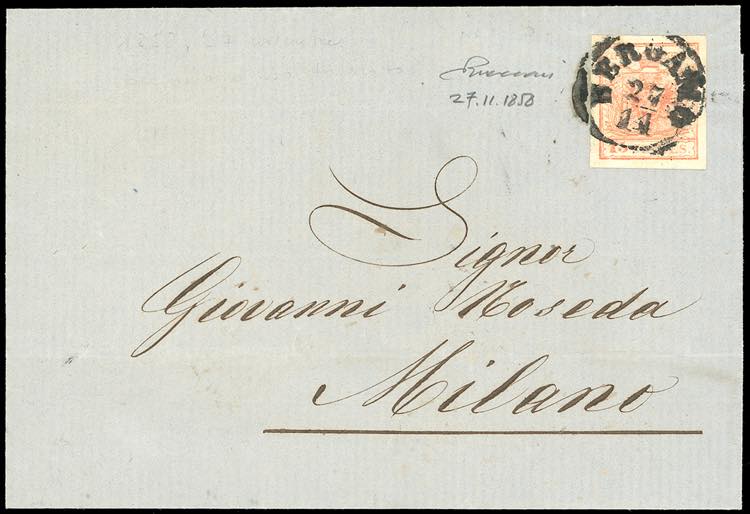 BERGAMO
27
11
15 CES.
27.11.1858
Signor
Giovanni Noseda
Milano